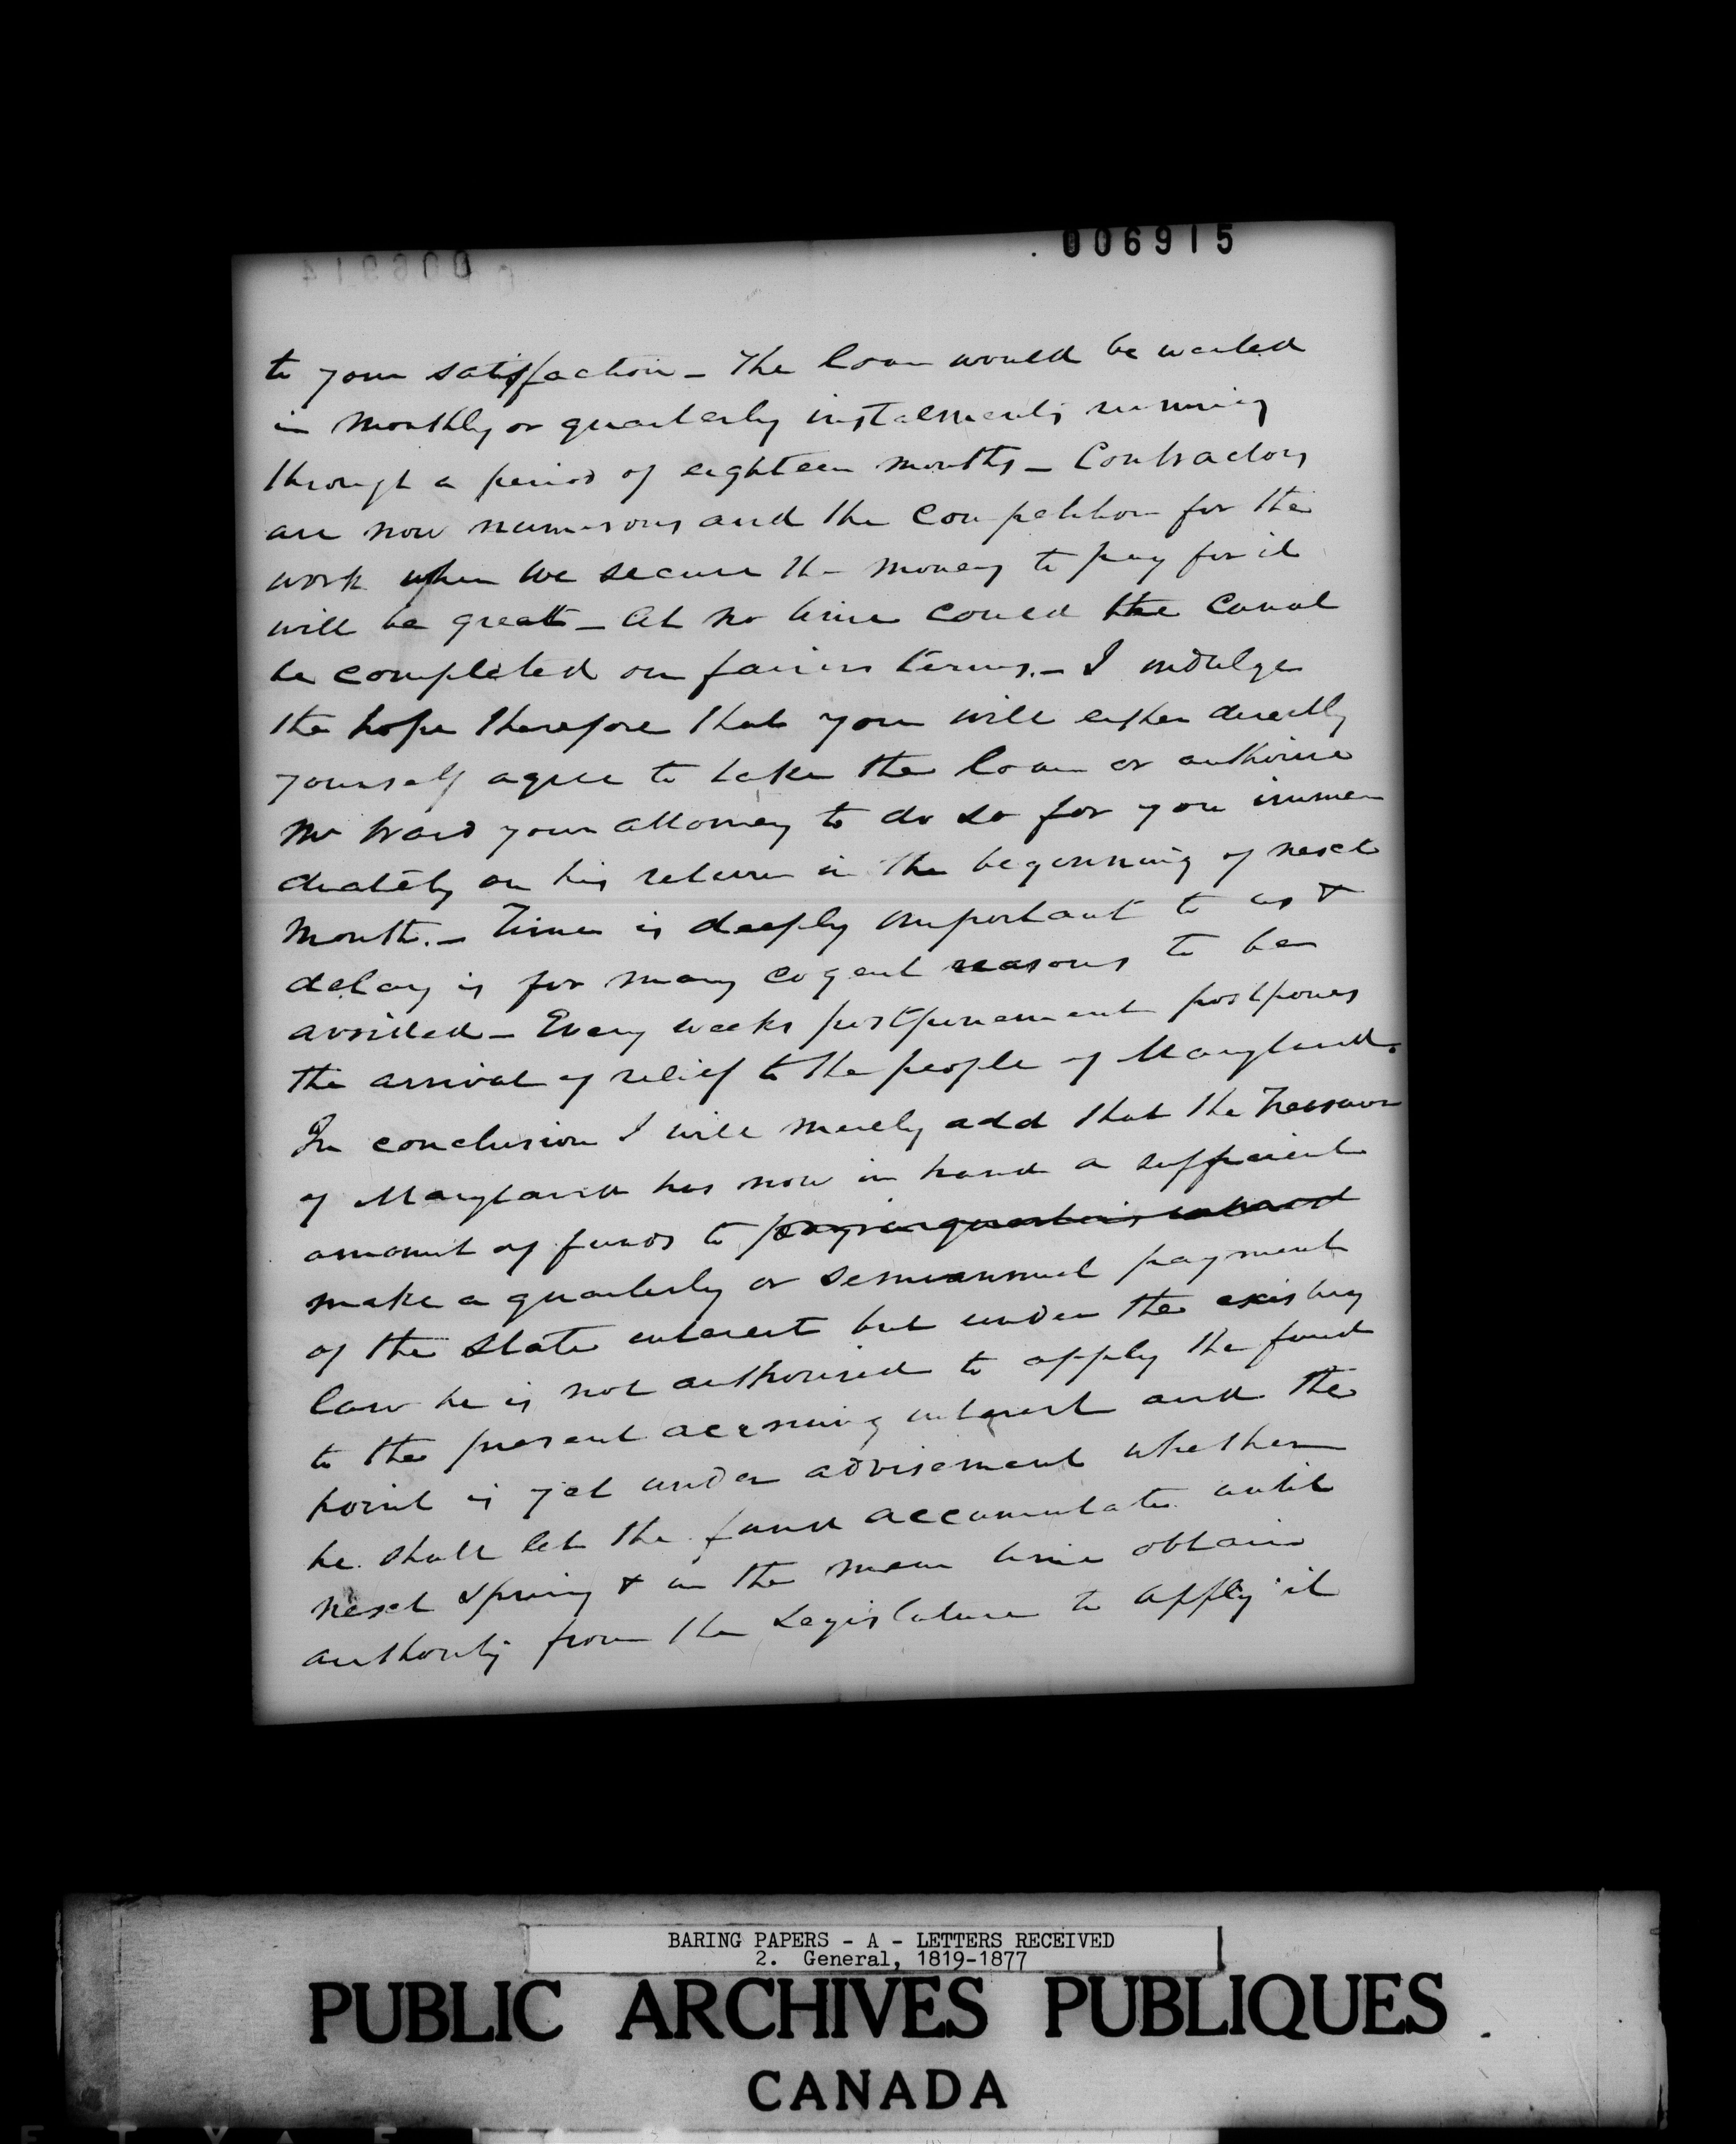 006915
to your satisfaction - The loan would be wanted
in monthly or quarterly instalments running
through a period of eighteen months - Contractors
are now numerous and the competition for the
work when we secure the money to pay for it
will be great - At no time could the Canal
be completed on fairer terms. - I indulge
the hope therefore that you will either directly
yourself agree to take the loan or authorise
Mr Ward your attorney to do so for you imme
diately on his return in the beginning of next
month. - Time is deeply important to us &
delay is for many cogent reasons to be
avoided - Every weeks postponement postpones
the arrival of relief to the people of Maryland.
In conclusion I will merely add that the Treasurer
of Maryland has now in hand a sufficient
amount of funds to
make a quarterly or semiannual payment
of the State interest but under the existing
law he is not authorised to apply the fund
to the present accruing interest and the
point is yet under advisement whether
he shall let the fund accumulate until
next Spring & in the mean time obtain
authority from the Legislature to apply it
BARING PAPERS - A - LETTERS RECEIVED
2. General, 1819-1877
PUBLIC ARCHIVES PUBLIQUES
CANADA